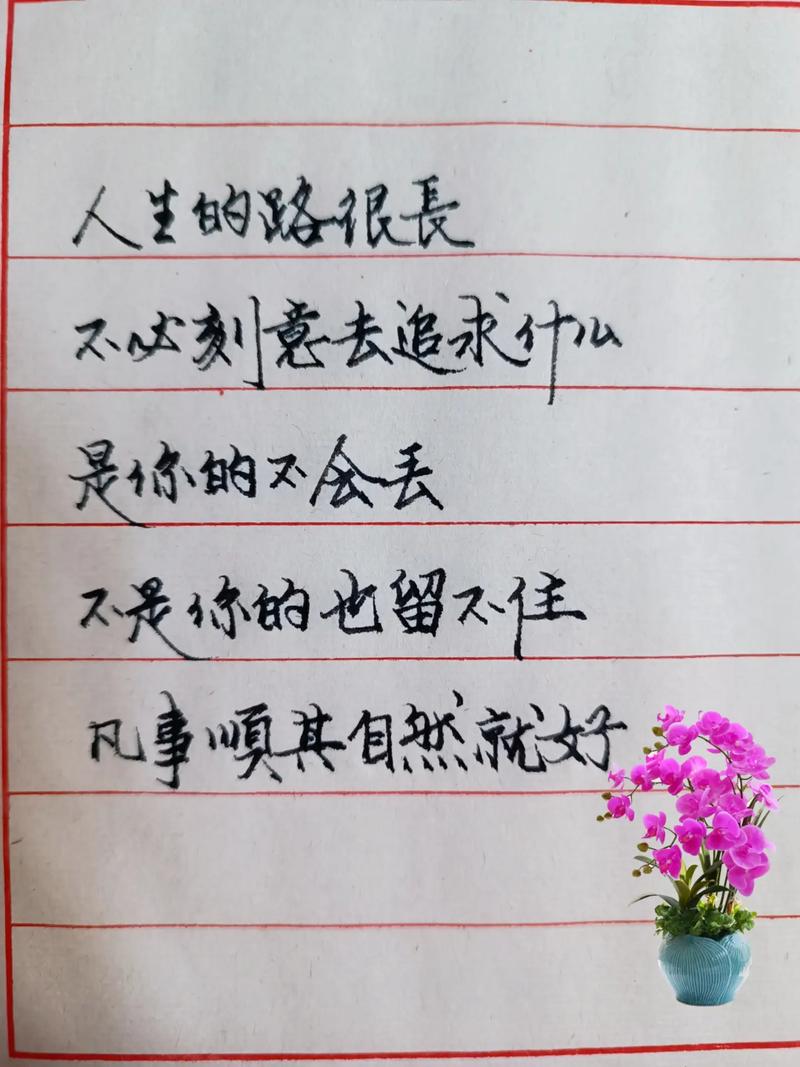 人生的路很長
不必刻意去追求什么
是你的不会丢
不是你的也留不住
凡事順其自然就好